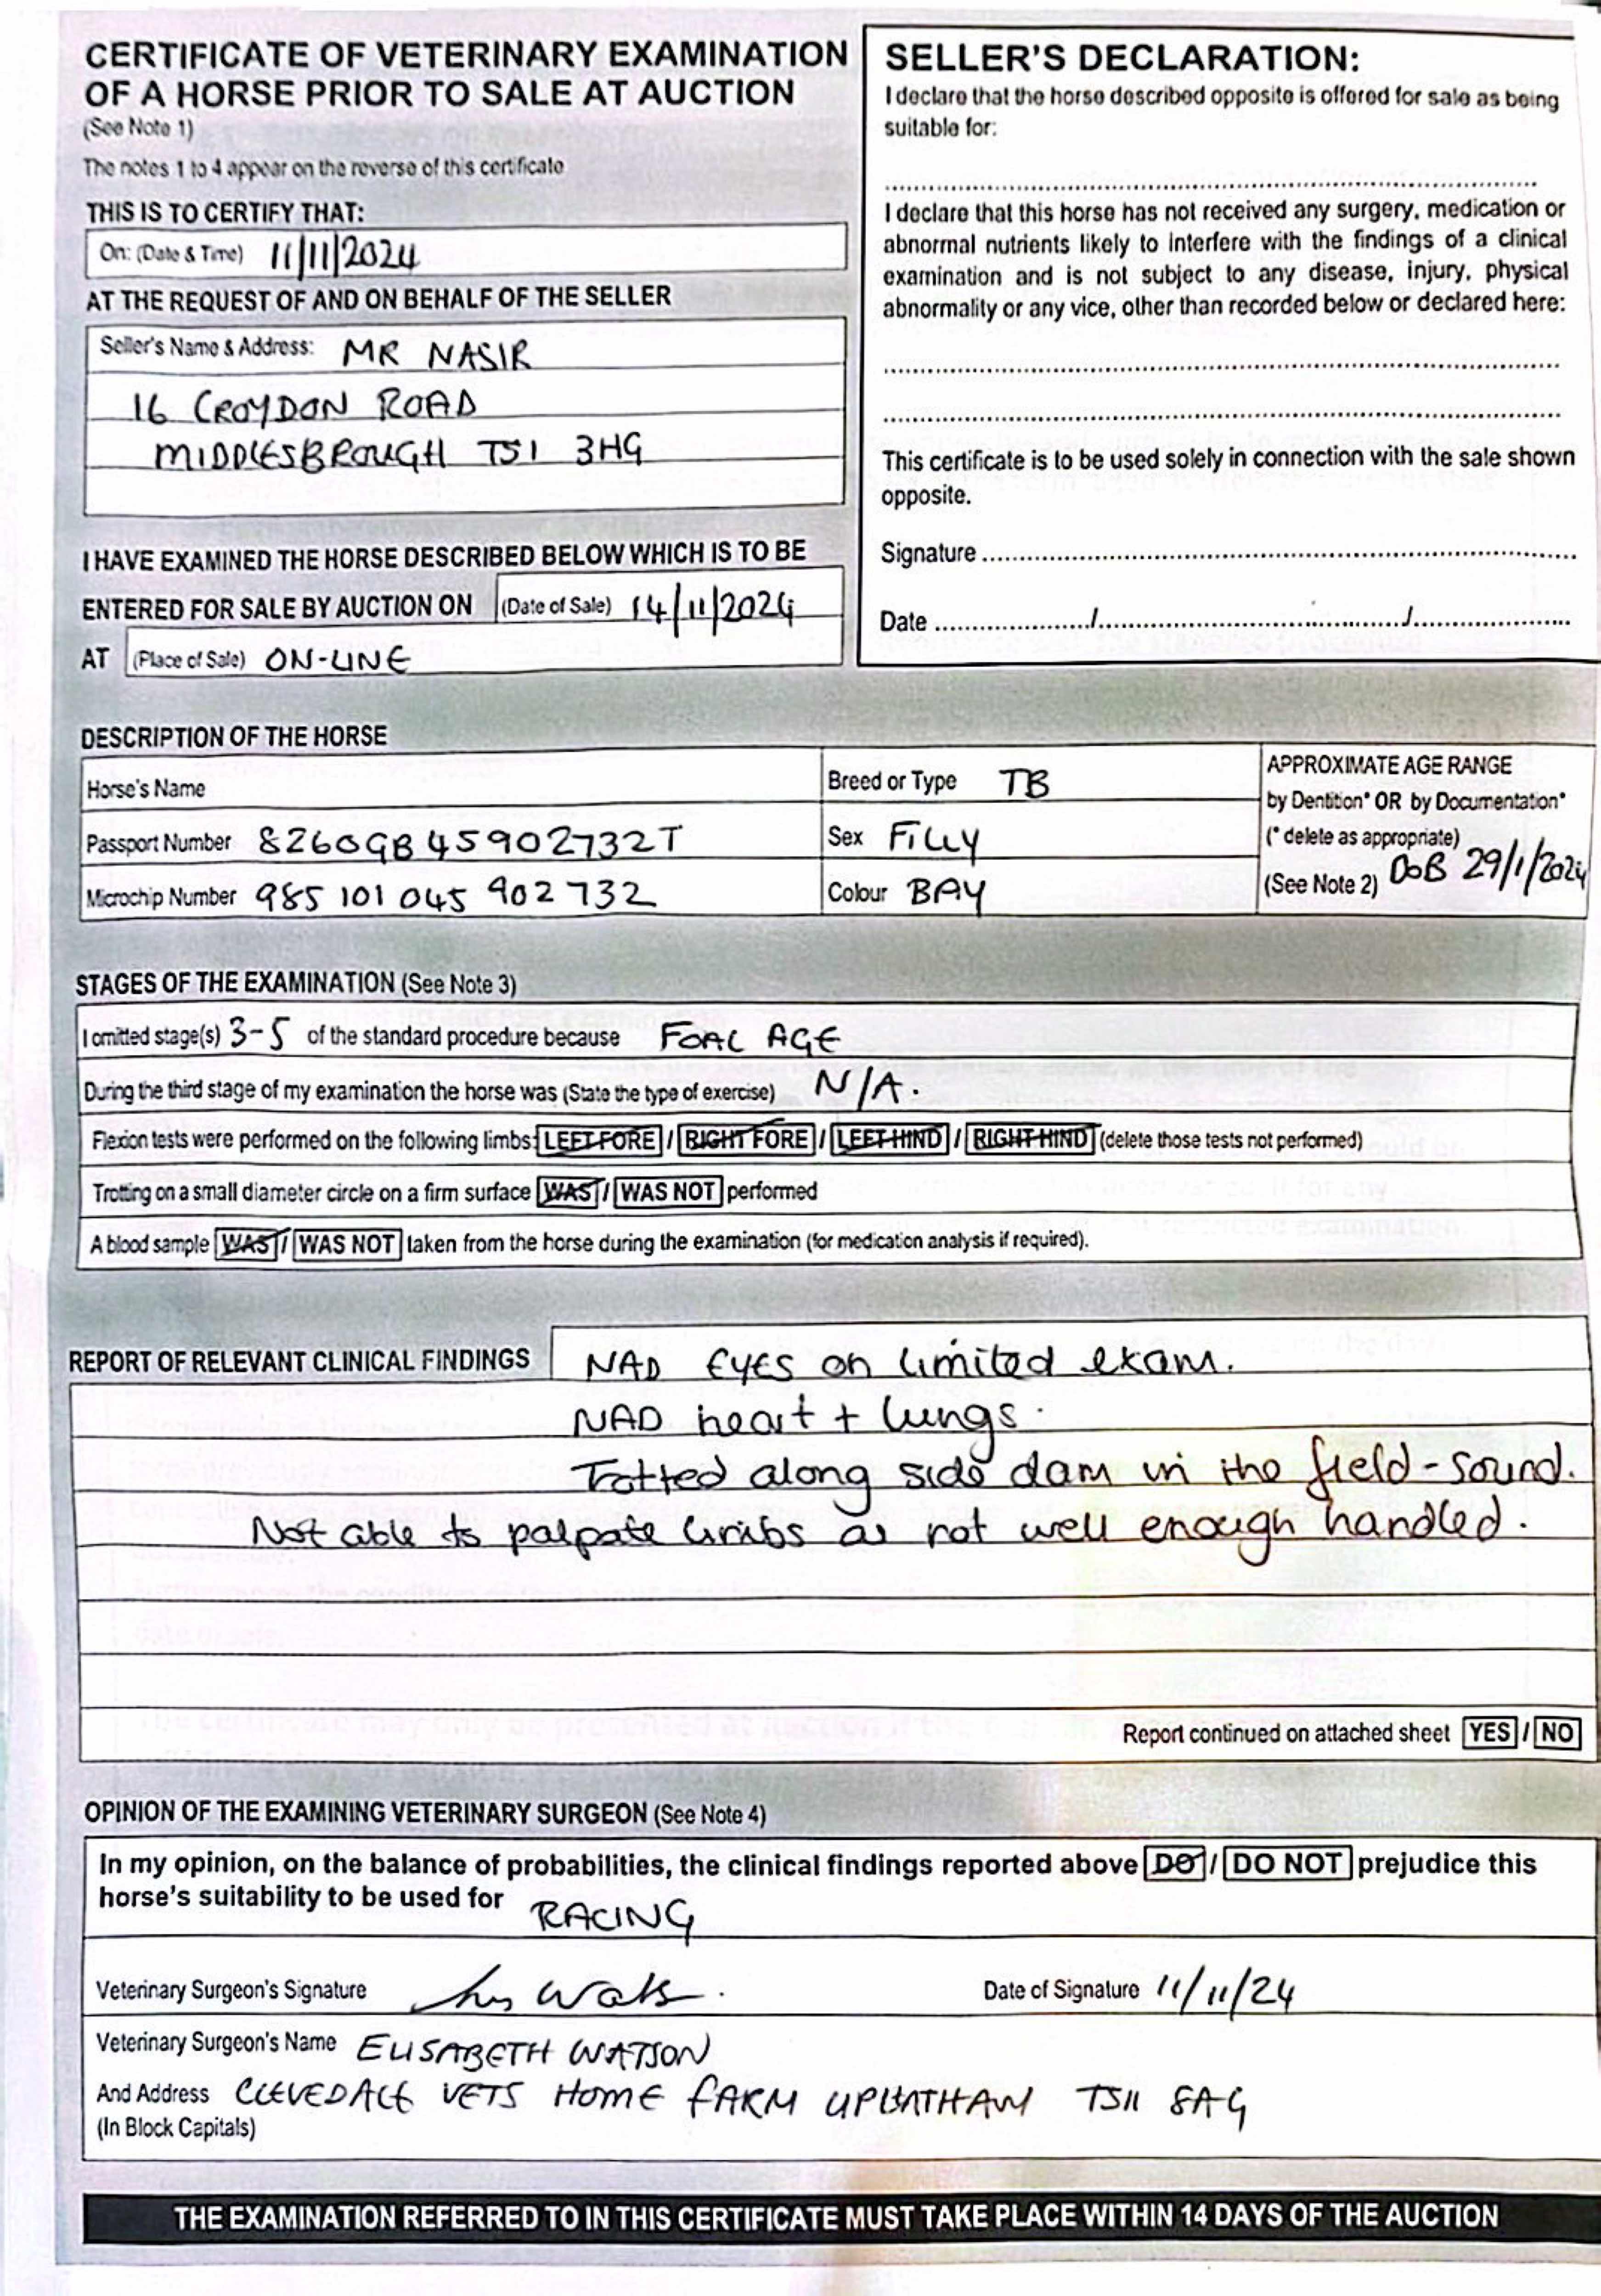 CERTIFICATE OF VETERINARY EXAMINATION
OF A HORSE PRIOR TO SALE AT AUCTION
(See Note 1)
The notes 1 to 4 appear on the reverse of this certificate
THIS IS TO CERTIFY THAT:
On: (Date & Time) 11/11/2024
AT THE REQUEST OF AND ON BEHALF OF THE SELLER
Seller's Name & Address: MR NASIR
16 CROYDON ROAD
MIDDLESBROUGH TS1 3HG
I HAVE EXAMINED THE HORSE DESCRIBED BELOW WHICH IS TO BE
ENTERED FOR SALE BY AUCTION ON (Date of Sale) 14/11/2024
AT (Place of Sale) ON-LINE
SELLER'S DECLARATION:
I declare that the horse described opposite is offered for sale as being
suitable for:
I declare that this horse has not received any surgery, medication or
abnormal nutrients likely to interfere with the findings of a clinical
examination and is not subject to any disease, injury, physical
abnormality or any vice, other than recorded below or declared here:
This certificate is to be used solely in connection with the sale shown
opposite.
Signature
Date / /
DESCRIPTION OF THE HORSE
Horse's Name
Breed or Type TB
Passport Number 8260GB45902732T
Sex FILLY
Microchip Number 985 101 045 902 732
Colour BAY
APPROXIMATE AGE RANGE
by Dentition* OR by Documentation*
(* delete as appropriate)
(See Note 2) DoB 29/1/2024
STAGES OF THE EXAMINATION (See Note 3)
I omitted stage(s) 3-5 of the standard procedure because FOAL AGE
During the third stage of my examination the horse was (State the type of exercise) N/A.
Flexion tests were performed on the following limbs: LEFT FORE / RIGHT FORE / LEFT HIND / RIGHT HIND (delete those tests not performed)
Trotting on a small diameter circle on a firm surface WAS / WAS NOT performed
A blood sample WAS / WAS NOT taken from the horse during the examination (for medication analysis if required).
REPORT OF RELEVANT CLINICAL FINDINGS NAD EYES on limited exam.
NAD heart + lungs.
Trotted along side dam in the field - sound.
Not able to palpate limbs as not well enough handled.
Report continued on attached sheet YES / NO
OPINION OF THE EXAMINING VETERINARY SURGEON (See Note 4)
In my opinion, on the balance of probabilities, the clinical findings reported above DO / DO NOT prejudice this
horse's suitability to be used for RACING
Veterinary Surgeon's Signature
Date of Signature 11/11/24
Veterinary Surgeon's Name ELISABETH WATSON
And Address CLEVEDALE VETS HOME FARM UPLEATHAM TS11 8AG
(In Block Capitals)
THE EXAMINATION REFERRED TO IN THIS CERTIFICATE MUST TAKE PLACE WITHIN 14 DAYS OF THE AUCTION